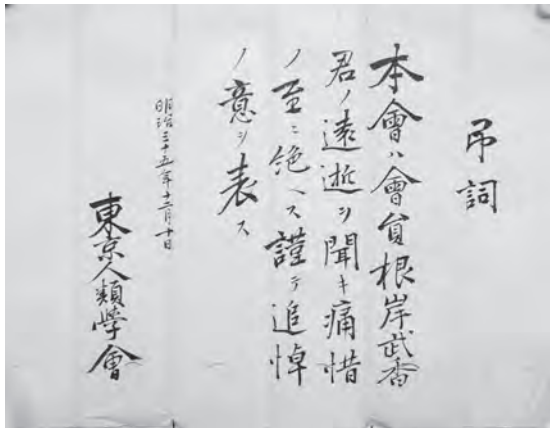 吊詞
本會ハ會員根岸武香
君ノ遠逝ヲ聞キ痛惜
ノ至ニ絶ヘス謹テ追悼
ノ意ヲ表ス
明治三十五年十二月十日
東京人類學會